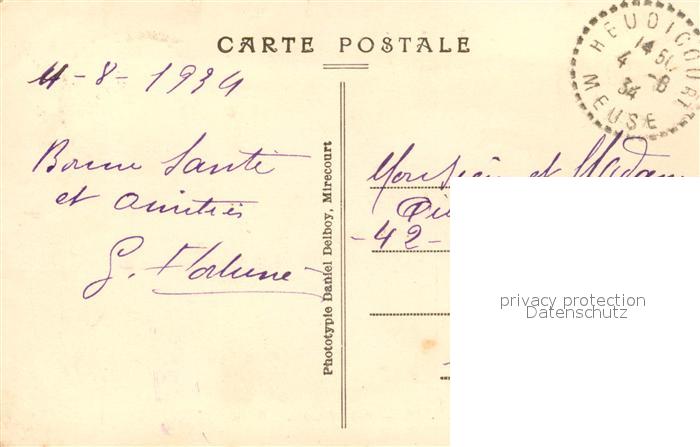 CARTE POSTALE
4-8-1934
Bonne Santé
et amitiés
G.
Phototypie Daniel Delboy, Mirecourt
HEUDICOURT
14 50
4 -8
34
MEUSE
Monsieur et Madame
-42-
privacy protection
Datenschutz